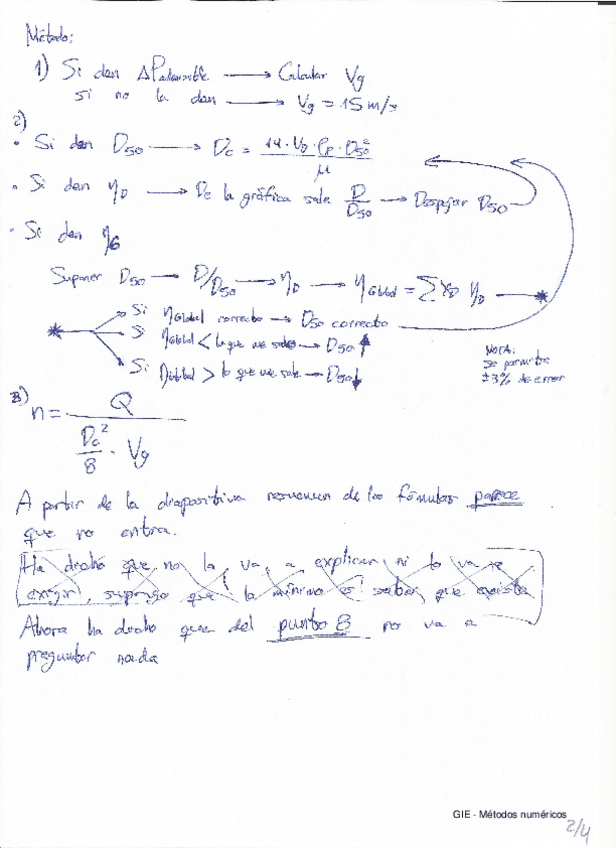 Método:
1) Si dan ΔPadmisible → Calcular Vg
si no la dan → Vg = 15 m/s
2)
• Si dan D50 → Dc = 14 · VD · ρp · D50² / μ
• Si dan ηD → De la gráfica sale D/D50 → Despejar D50
• Si dan ηG
Suponer D50 → D/D50 → ηD → ηGlobal = Σ XD ηD → *
* → Si ηGlobal correcto → D50 correcto
Si ηGlobal < lo que me sale → D50 ↑
Si ηGlobal > lo que me sale → D50 ↓
NOTA:
se permite
±3% de error
3) n = Q / (Dc²/8 · Vg)
A partir de la diapositiva resumen de las fórmulas parece
que no entra.
Ha dicho que no la va a explicar ni lo va a
exigir, supongo que lo mínimo es saber que existe
Ahora ha dicho que del punto 8 no va a
preguntar nada
GIE - Métodos numéricos
2/4